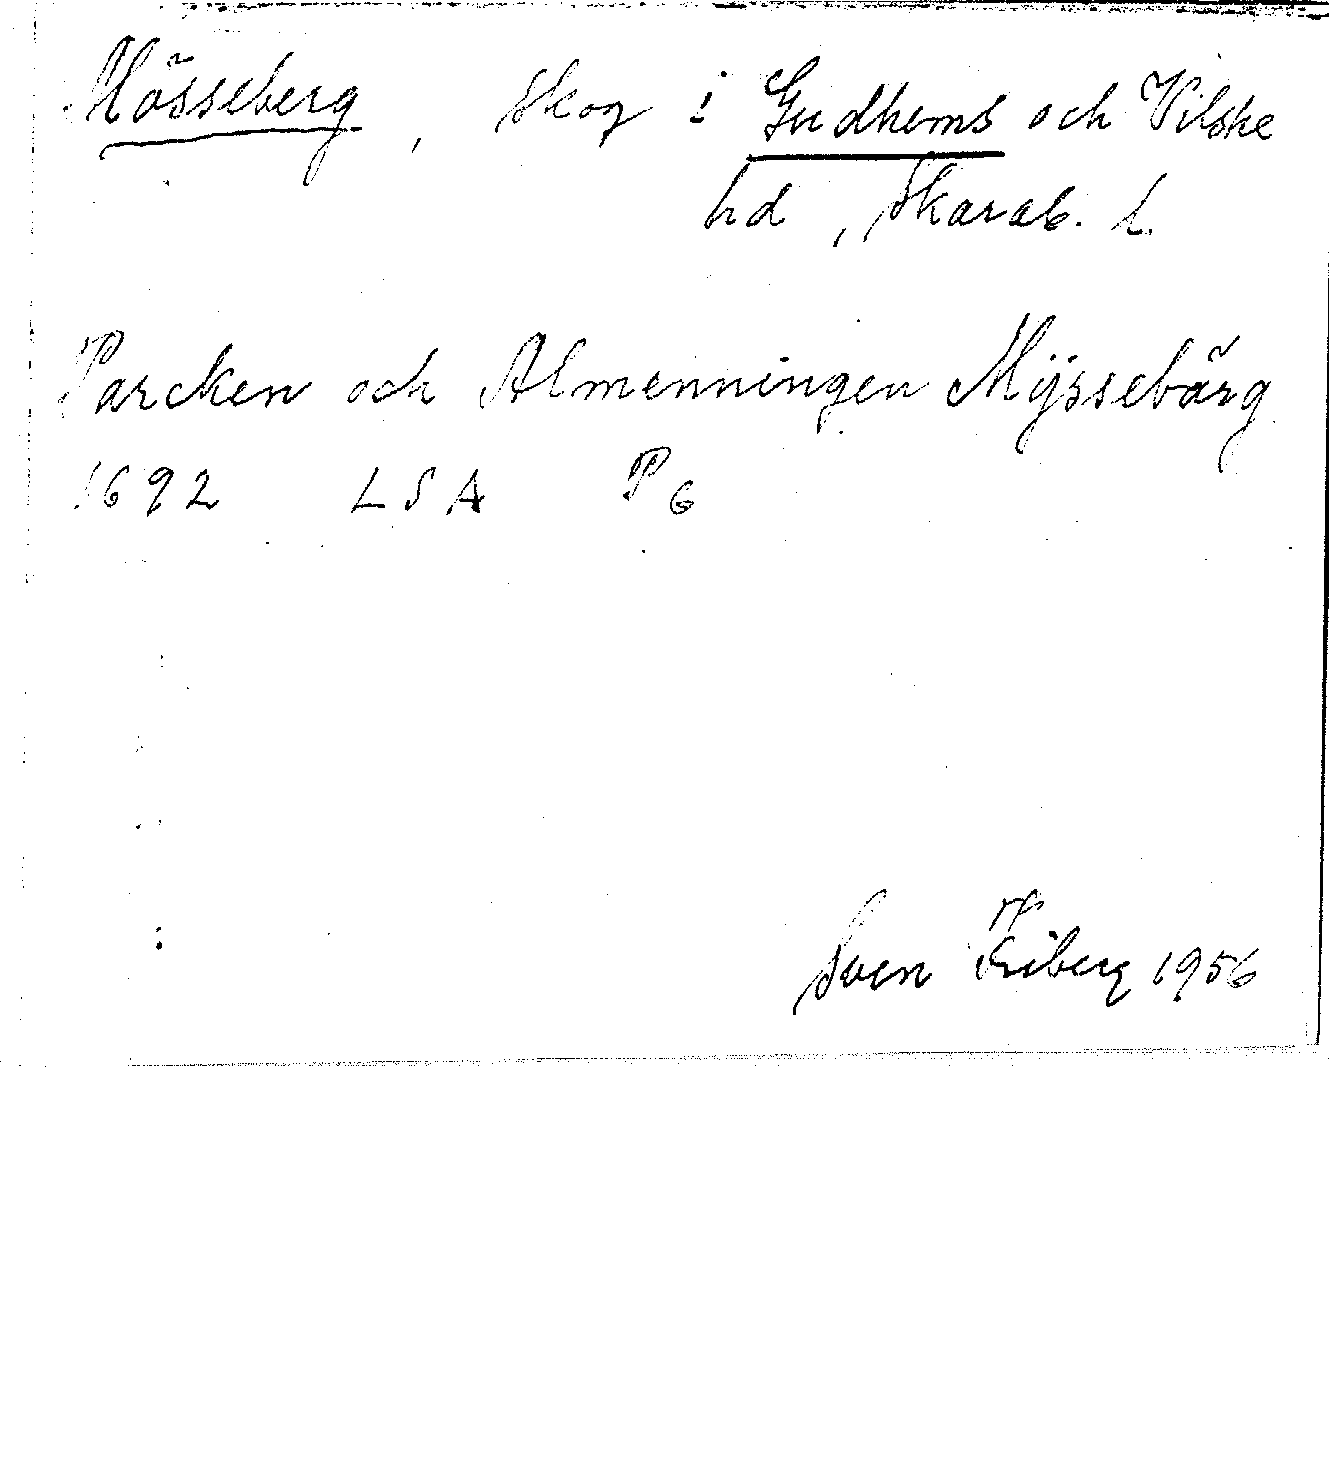 Mösseberg, skog i Gudhems och Vilske
hd, Skarab. l.
Parcken och Almenningen Mÿssebärg
1692 LSA P 6
Sven Friberg 1956